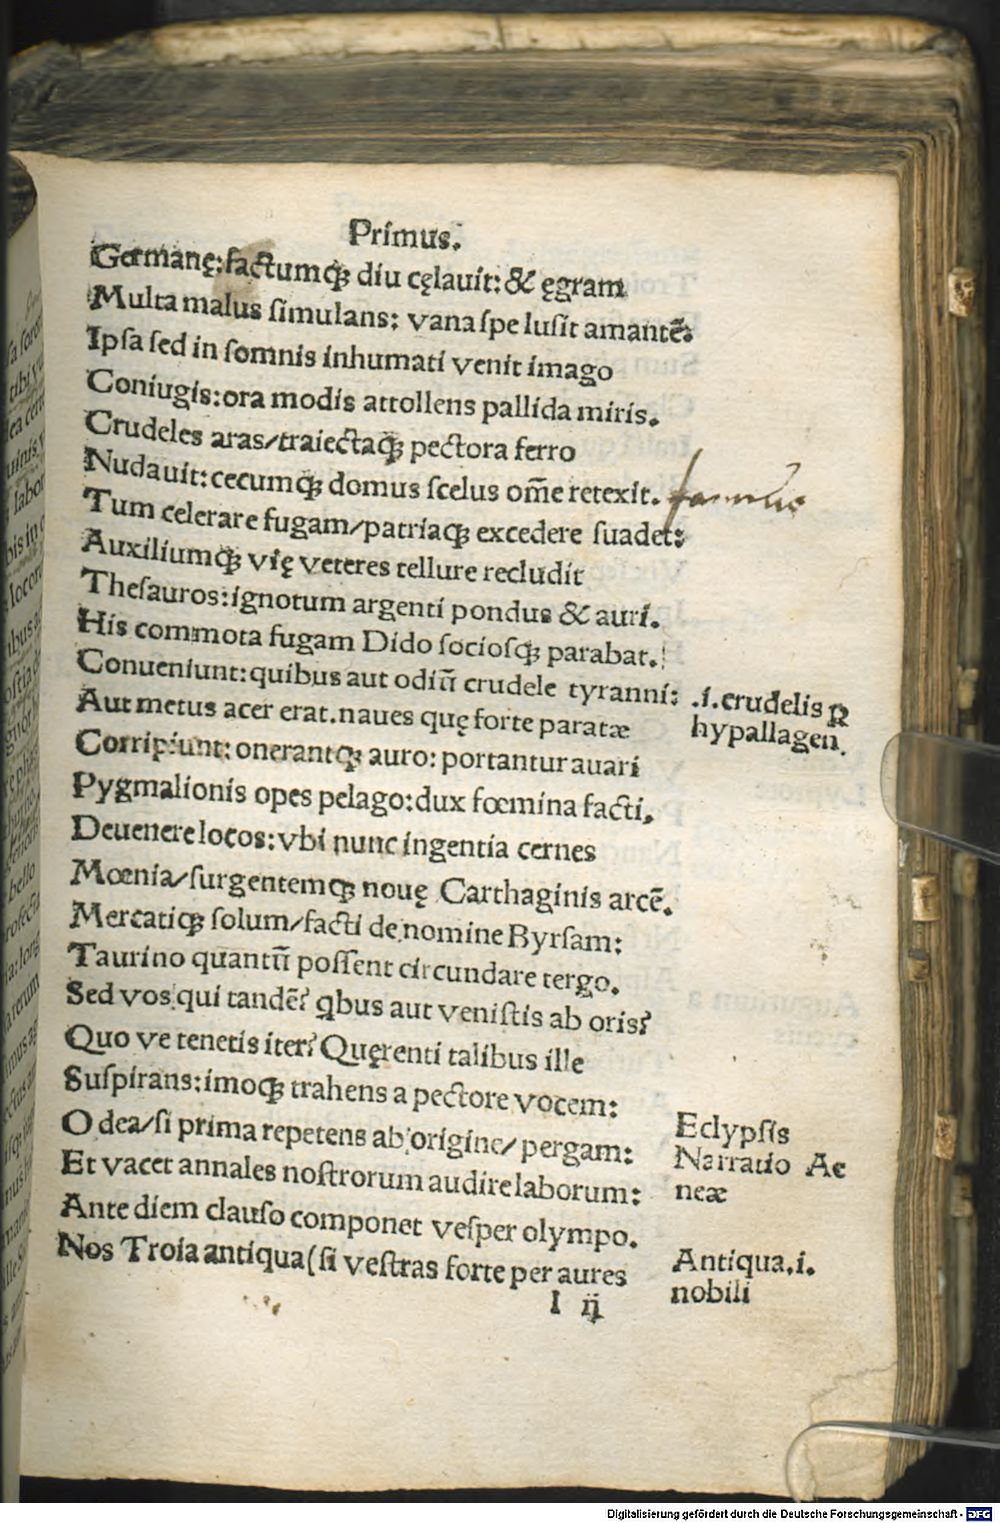 Primus.
Germanę:factumq; diu cęlauit: & ęgram
Multa malus simulans: vana spe lusit amantē.
Ipsa sed in somnis inhumati venit imago
Coniugis:ora modis attollens pallida miris.
Crudeles aras/traiectaq; pectora ferro
Nudauit:cecumq; domus scelus om̄e retexit.
Tum celerare fugam/patriaq; excedere suadet:
Auxiliumq; vię veteres tellure recludit
Thesauros:ignotum argenti pondus & auri.
His commota fugam Dido sociosq; parabat.
Conueniunt:quibus aut odiū crudele tyranni:
.i.crudelis ꝑ
Aut metus acer erat.naues quę forte paratæ
hypallagen.
Corripiunt: onerantq; auro: portantur auari
Pygmalionis opes pelago:dux fœmina facti,
Deuenere locos:vbi nunc ingentia cernes
Mœnia/surgentemq; nouę Carthaginis arcē.
Mercatiq; solum/facti de nomine Byrsam:
Taurino quantū possent circundare tergo.
Sed vos qui tandē? qbus aut venistis ab oris?
Quo ve tenetis iter? Quęrenti talibus ille
Suspirans:imoq; trahens a pectore vocem:
O dea/si prima repetens ab origine/ pergam:
Eclypsis
Et vacet annales nostrorum audire laborum:
Narratio Ae
neæ
Ante diem clauso componet vesper olympo.
Nos Troia antiqua(si vestras forte per aures
Antiqua.i.
nobili
I ij
Digitalisierung gefördert durch die Deutsche Forschungsgemeinschaft - DFG